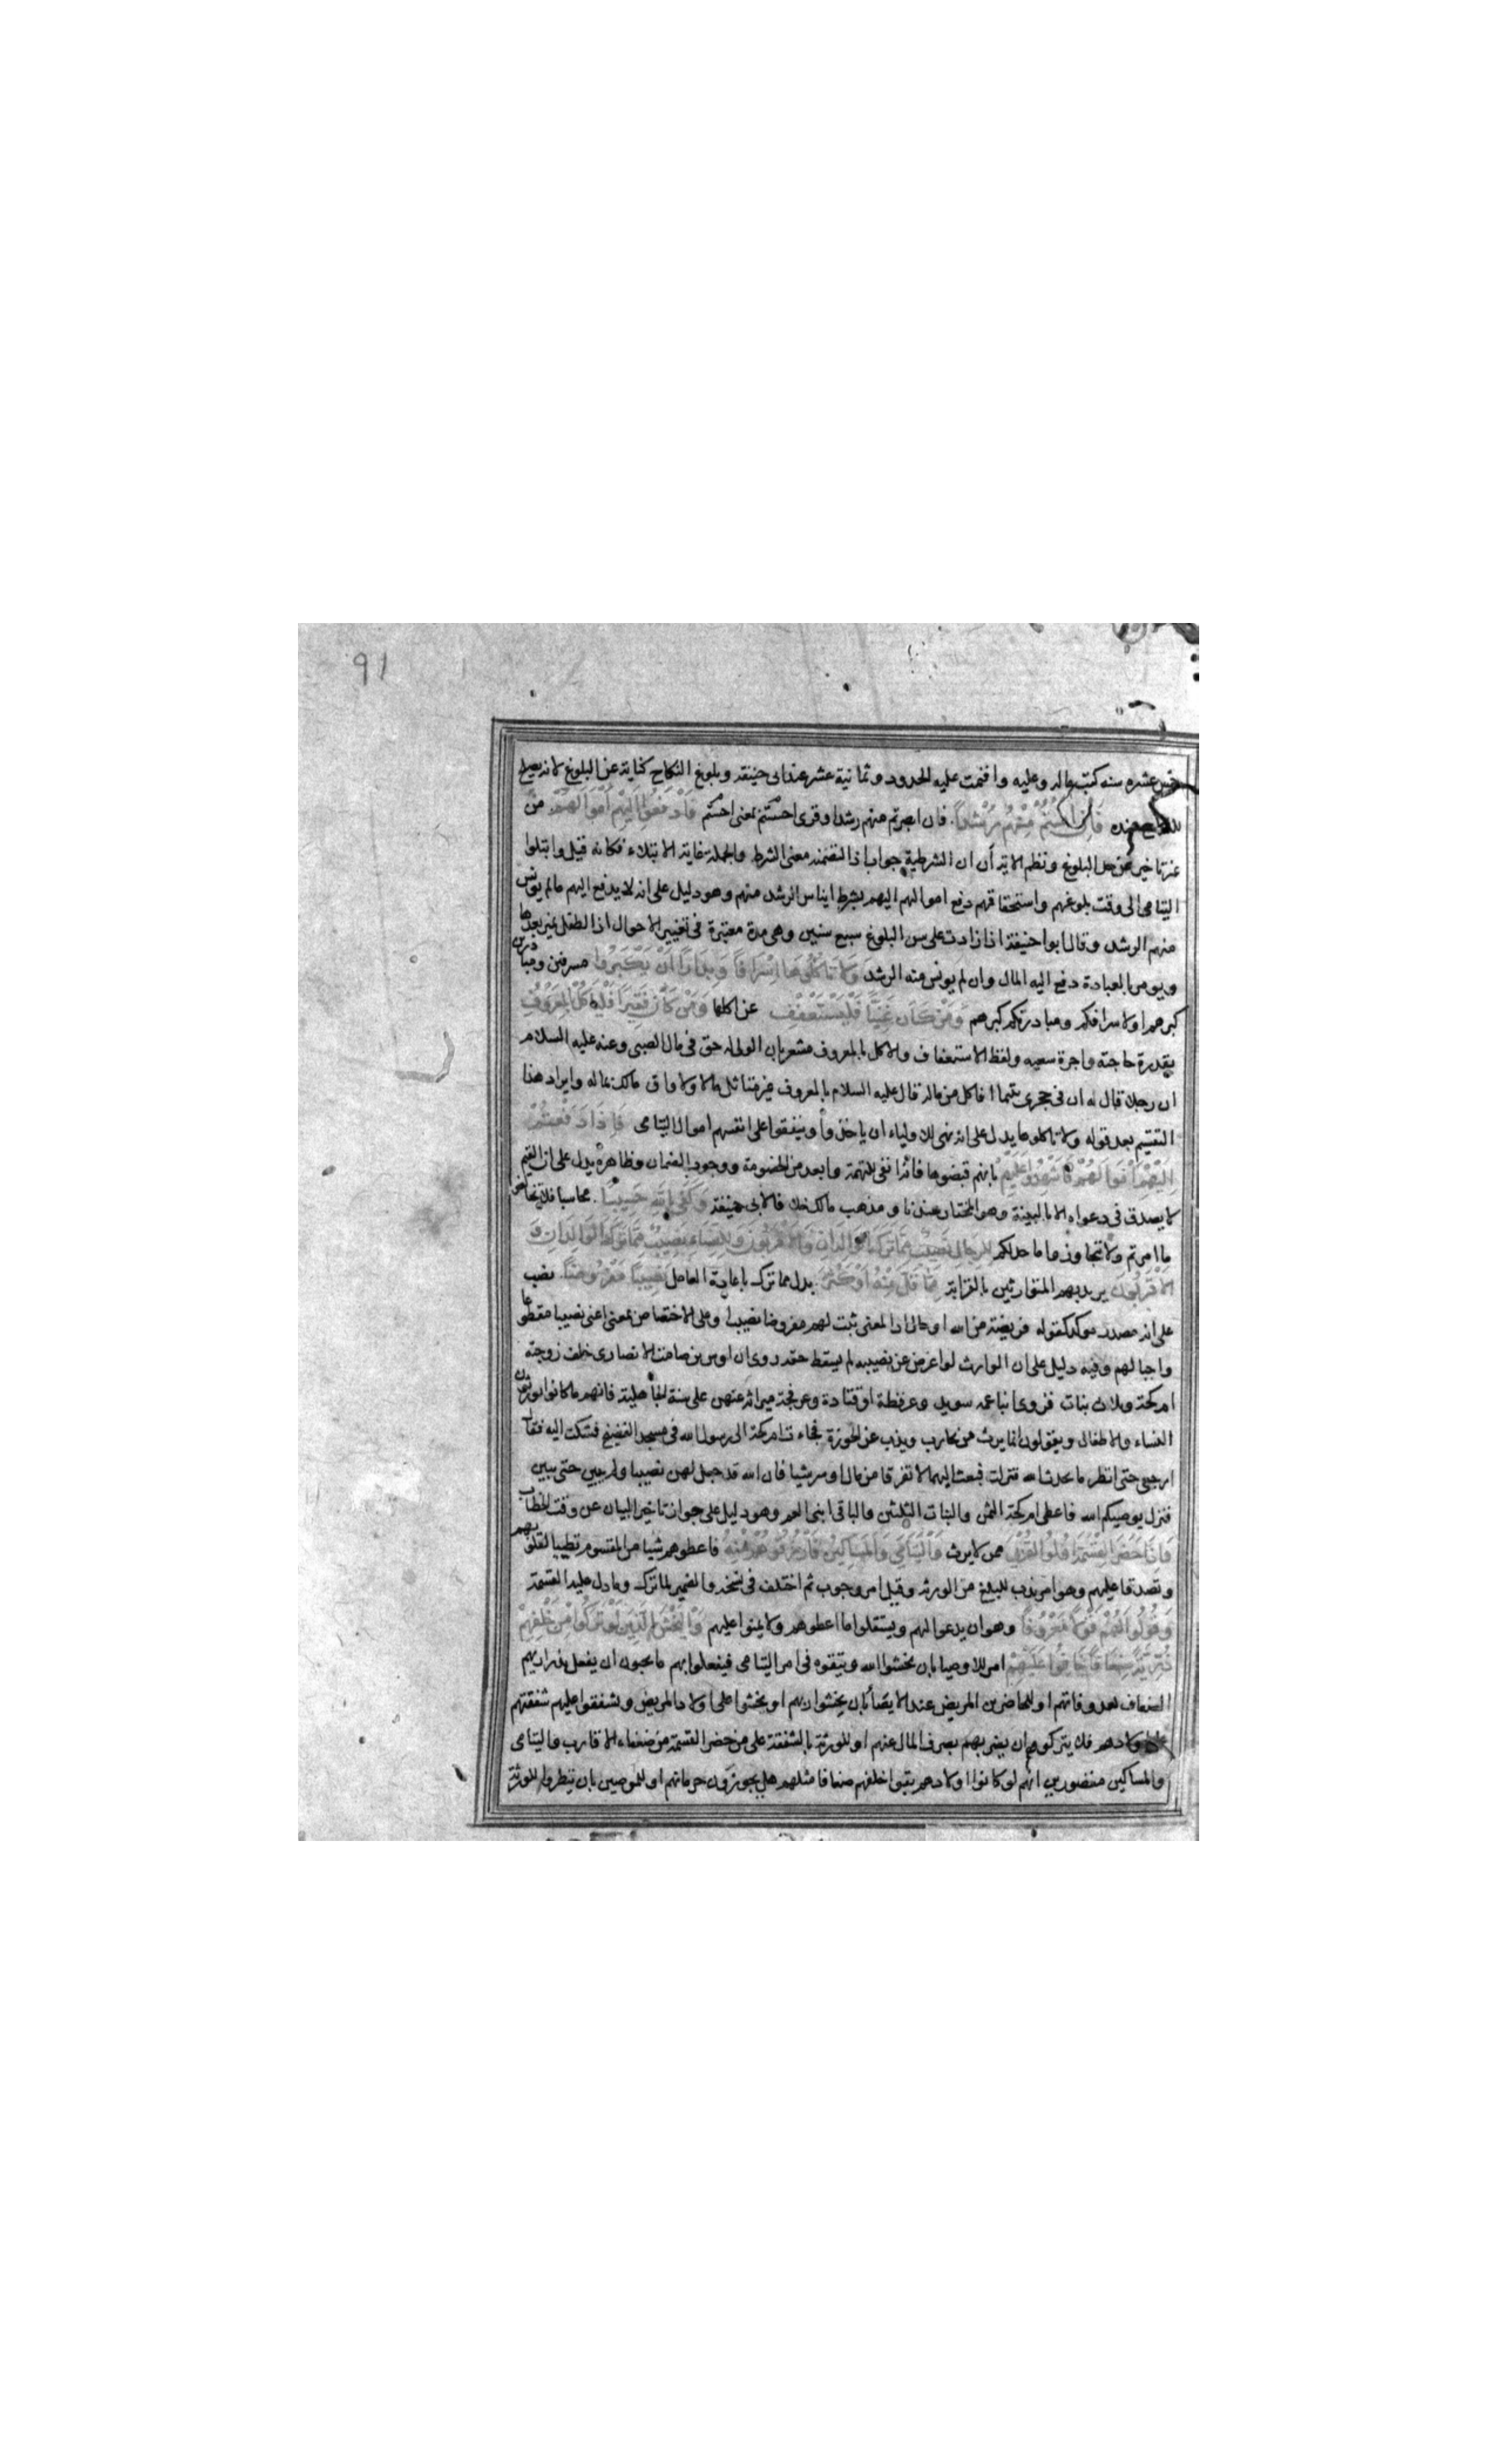 91
خمس عشره سنه كتب ماله وعليه واقيمت عليه الحدود وثمانية عشر عند ابى حنيفة وبلوغ النكاح كناية عن البلوغ لانه يصلح
للنكاح عنده فَاِنْ اٰنَسْتُمْ مِنْهُمْ رُشْداً . فان ابصرتم منهم رشدا وقرئ احستم بمعنى احسستم فَادْفَعُوا اِلَيْهِمْ اَمْوَالَهُمْ من
غير تاخير عن حد البلوغ ونظم الاية ان ان الشرطية جواب اذا المتضمنة معنى الشرط والجملة غاية الابتلاء فكانه قيل وابتلوا
اليتامى الى وقت بلوغهم واستحقاقهم دفع اموالهم اليهم بشرط ايناس الرشد منهم وهو دليل على انه لا يدفع اليهم مالم يونس
منهم الرشد وقال ابو حنيفة اذا زادت على سن البلوغ سبع سنين وهى مدة معتبرة فى تغيير الاحوال اذ الطفل يميز بعدها
ويومر بالعبادة دفع اليه المال وان لم يونس منه الرشد وَلَا تَاْكُلُوهَا اِسْرَافاً وَبِدَاراً اَنْ يَكْبَرُوا مسرفين ومبادرين
كبرهم او لاسرافكم ومبادرتكم كبرهم وَمَنْ كَانَ غَنِيّاً فَلْيَسْتَعْفِفْ عن اكلها وَمَنْ كَانَ فَقِيراً فَلْيَاْكُلْ بِالْمَعْرُوفِ
بقدر حاجته واجرة سعيه ولفظ الاستعفاف والاكل بالمعروف مشعر بان الولى له حق فى مال الصبى وعنه عليه السلام
ان رجلا قال له ان فى حجرى يتيما افاكل من ماله قال عليه السلام بالمعروف غير متاثل مالا ولا واق مالك بماله وايراد هذا
التقسيم بعد قوله ولا تاكلوها يدل على انه نهى للاولياء ان ياخذوا وينفقوا على انفسهم اموال اليتامى فَاِذَا دَفَعْتُمْ
اِلَيْهِمْ اَمْوَالَهُمْ فَاَشْهِدُوا عَلَيْهِمْ بانهم قبضوها فانه انفى للتهمة وابعد من الخصومة ووجوب الضمان وظاهره يدل على ان القيم
لا يصدق فى دعواه الا بالبينة وهو المختار عندنا ومذهب مالك خلافا لابى حنيفة وَكَفٰى بِاللّٰهِ حَسِيباً . محاسبا فلا تخالفوا
ما امرتم ولا تجاوزوا ما حد لكم لِلرِّجَالِ نَصِيبٌ مِمَّا تَرَكَ الْوَالِدَانِ وَالْاَقْرَبُونَ وَلِلنِّسَاءِ نَصِيبٌ مِمَّا تَرَكَ الْوَالِدَانِ وَ
الْاَقْرَبُونَ يريد بهم المتوارثين بالقرابة مِمَّا قَلَّ مِنْهُ اَوْ كَثُرَ بدل مما ترك باعادة العامل نَصِيباً مَفْرُوضاً . نصب
على انه مصدر موكد كقوله فريضة من الله او حال اذ المعنى ثبت لهم مفروضا نصيب او على الاختصاص بمعنى اعنى نصيبا مقطوعا
واجبا لهم وفيه دليل على ان الوارث لو اعرض عن نصيبه لم يسقط حقه روى ان اوس بن صامت الانصارى خلف زوجته
ام كحة وثلاث بنات فزوى ابنا عمه سويد وعرفطة او قتادة وعرفجة ميراثه عنهن على سنة الجاهلية فانهم ما كانوا يورثون
النساء والاطفال ويقولون انما يرث من يحارب ويذب عن الحوزة فجاءت ام كحة الى رسول الله فى مسجد الفضيخ فشكت اليه فقال
ارجعى حتى انظر ما يحدث الله فنزلت فبعث اليهما لا تفرقا من مال اوس شيا فان الله قد جعل لهن نصيبا ولم يبين حتى يبين
فنزل يوصيكم الله فاعطى ام كحة الثمن والبنات الثلثين والباقى ابنى العم وهو دليل على جواز تاخير البيان عن وقت الخطاب
وَاِذَا حَضَرَ الْقِسْمَةَ اُولُوا الْقُرْبٰى ممن لا يرث وَالْيَتَامٰى وَالْمَسَاكِينُ فَارْزُقُوهُمْ مِنْهُ فاعطوهم شيا من المقسوم تطييبا لقلوبهم
وتصدقا عليهم وهو امر ندب للبلغ من الورثة وقيل امر وجوب ثم اختلف فى نسخه والضمير لما ترك وما دل عليه القسمة
وَقُولُوا لَهُمْ قَوْلًا مَعْرُوفاً وهو ان يدعوا لهم ويستقلوا ما اعطوهم ولا يمنوا عليهم وَلْيَخْشَ الَّذِينَ لَوْ تَرَكُوا مِنْ خَلْفِهِمْ
ذُرِّيَّةً ضِعَافاً خَافُوا عَلَيْهِمْ امر للاوصيا بان يخشوا الله ويتقوه فى امر اليتامى فيفعلوا بهم ما يحبون ان يفعل بذراريهم
الضعاف بعد وفاتهم او للحاضرين المريض عند الايصا بان يخشوا ربهم او يخشوا على اولاد المريض ويشفقوا عليهم شفقتهم
على اولادهم فلا يتركوهم ان يضر بهم بصرف المال عنهم او للورثة بالشفقة على من حضر القسمة من ضعفاء الاقارب واليتامى
والمساكين متصورين انهم لو كانوا اولادهم بقوا خلفهم ضعافا مثلهم هل يجوزون حرمانهم او للموصين بان ينظروا للورثة